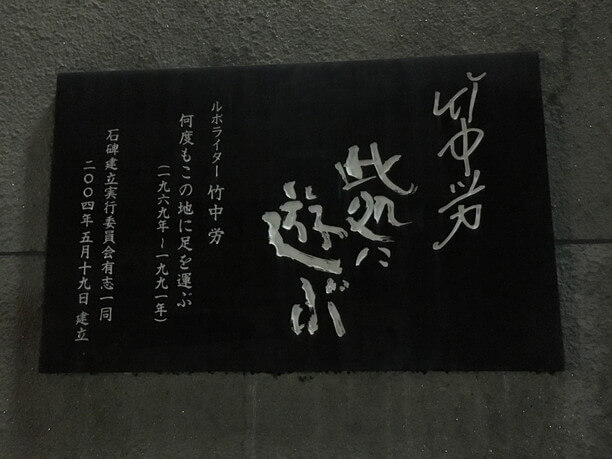 竹中労
此処に
遊ぶ
ルポライター 竹中 労
何度もこの地に足を運ぶ
(一九六九年～一九九一年)
石碑建立実行委員会有志一同
二〇〇四年五月十九日 建立